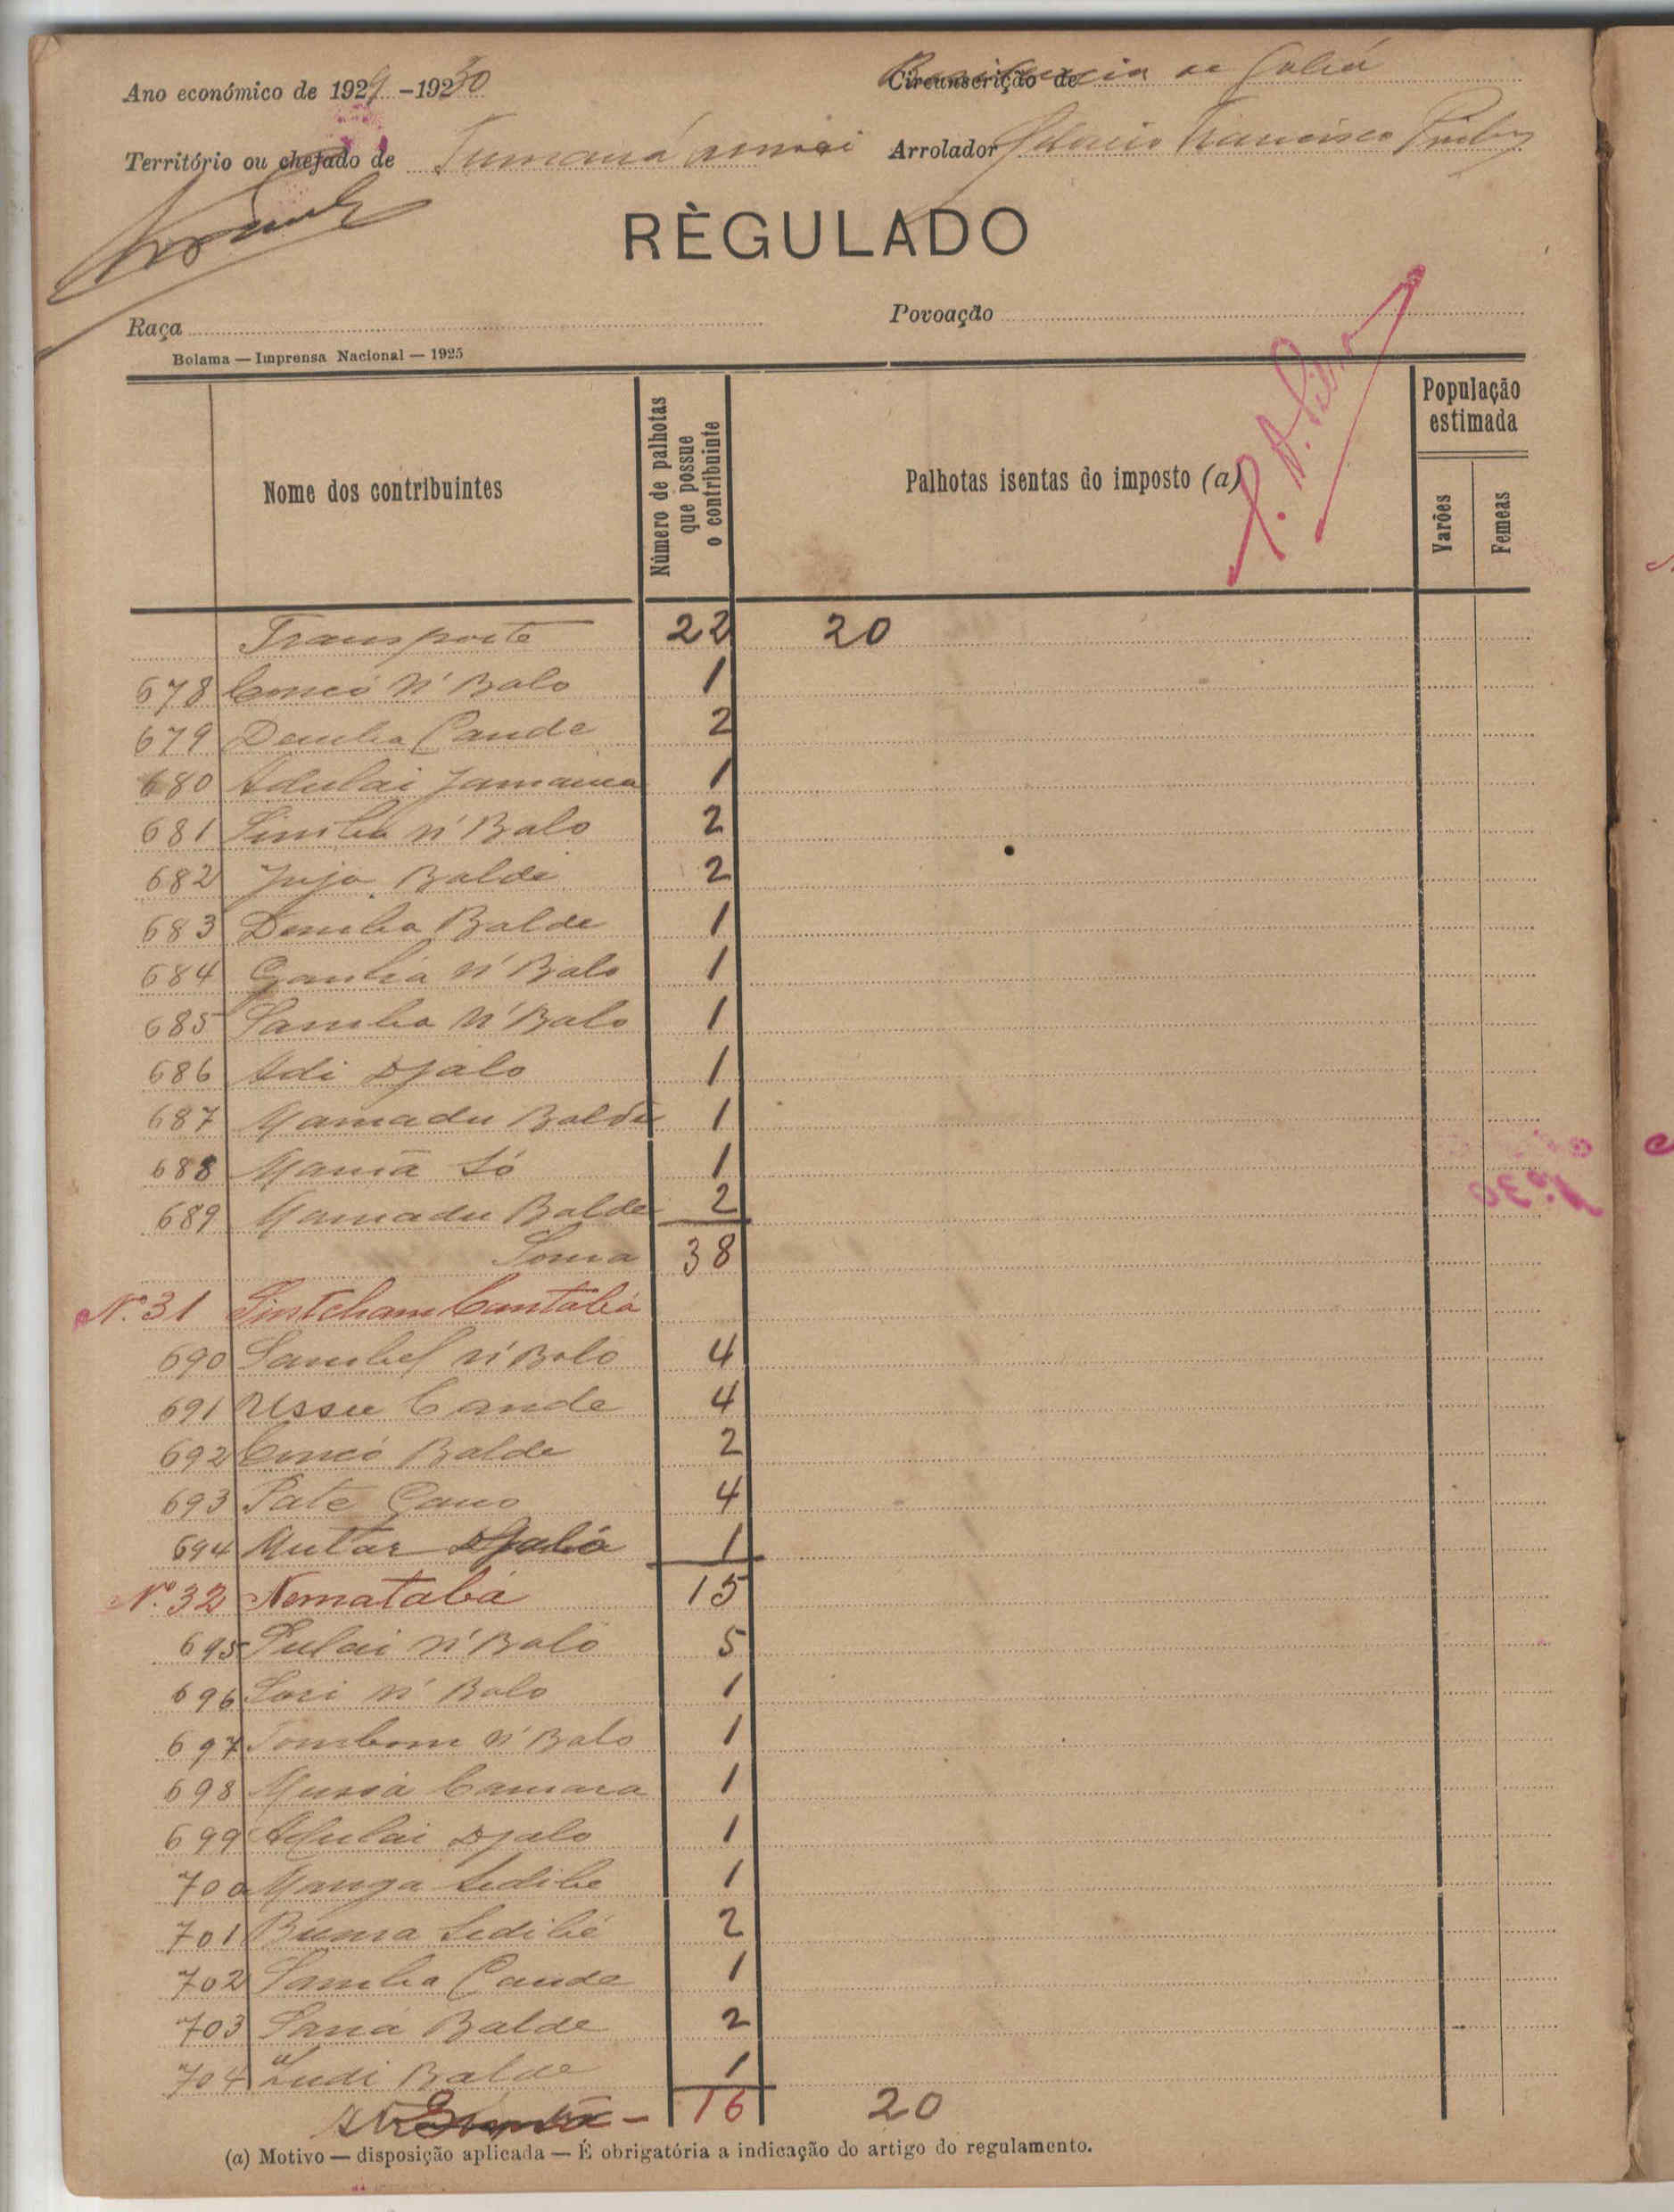 Ano económico de 1929-1930
Circunscrição de
Território ou chefado de Tumaná
Arrolador Francisco
RÈGULADO
Raça
Povoação
Bolama — Imprensa Nacional — 1925
Nome dos contribuintes
Número de palhotas que possue o contribuinte
Palhotas isentas do imposto (a)
População estimada
Varões
Femeas
Transporte 22 20
678 N' Balo 1
679 Demba Cande 2
680 Adulai 1
681 Simba N' Balo 2
682 Juja Balde 2
683 Demba Balde 1
684 N' Balo 1
685 Samba N' Balo 1
686 Adi Djalo 1
687 Mamadu Balde 1
688 Mamã Só 1
689 Mamadu Balde 2
Soma 38
Nº 31 Sintcham Cantabá
690 Sambel N' Balo 4
691 Ussu Cande 4
692 Balde 2
693 Pate 4
694 Mutar Djaló 1
Nº 32 Nematabá 15
695 N' Balo 5
696 Sori N' Balo 1
697 Tombom N' Balo 1
698 Camara 1
699 Adulai Djalo 1
700 Manga Sedibe 1
701 Buma Sedibé 2
702 Samba Cande 1
703 Sana Balde 2
704 Ludi Balde 1
16 20
(a) Motivo — disposição aplicada — É obrigatória a indicação do artigo do regulamento.